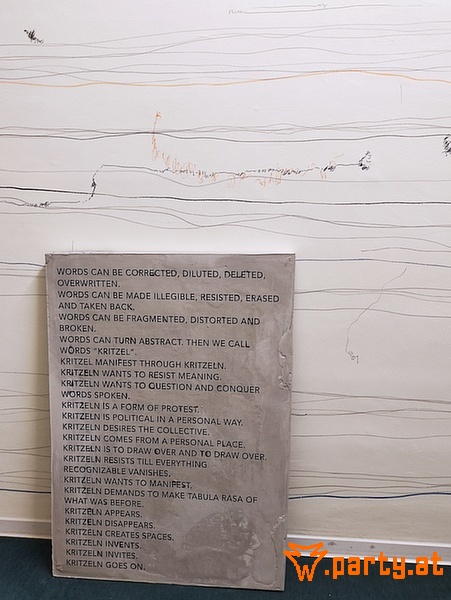 WORDS CAN BE CORRECTED, DILUTED, DELETED,
OVERWRITTEN.
WORDS CAN BE MADE ILLEGIBLE, RESISTED, ERASED
AND TAKEN BACK.
WORDS CAN BE FRAGMENTED, DISTORTED AND
BROKEN.
WORDS CAN TURN ABSTRACT. THEN WE CALL
WORDS "KRITZEL".
KRITZEL MANIFEST THROUGH KRITZELN.
KRITZELN WANTS TO RESIST MEANING.
KRITZELN WANTS TO QUESTION AND CONQUER
WORDS SPOKEN.
KRITZELN IS A FORM OF PROTEST.
KRITZELN IS POLITICAL IN A PERSONAL WAY.
KRITZELN DESIRES THE COLLECTIVE.
KRITZELN COMES FROM A PERSONAL PLACE.
KRITZELN IS TO DRAW OVER AND TO DRAW OVER.
KRITZELN RESISTS TILL EVERYTHING
RECOGNIZABLE VANISHES.
KRITZELN WANTS TO MANIFEST.
KRITZELN DEMANDS TO MAKE TABULA RASA OF
WHAT WAS BEFORE.
KRITZELN APPEARS.
KRITZELN DISAPPEARS.
KRITZELN CREATES SPACES.
KRITZELN INVENTS.
KRITZELN INVITES.
KRITZELN GOES ON.
W.party.at